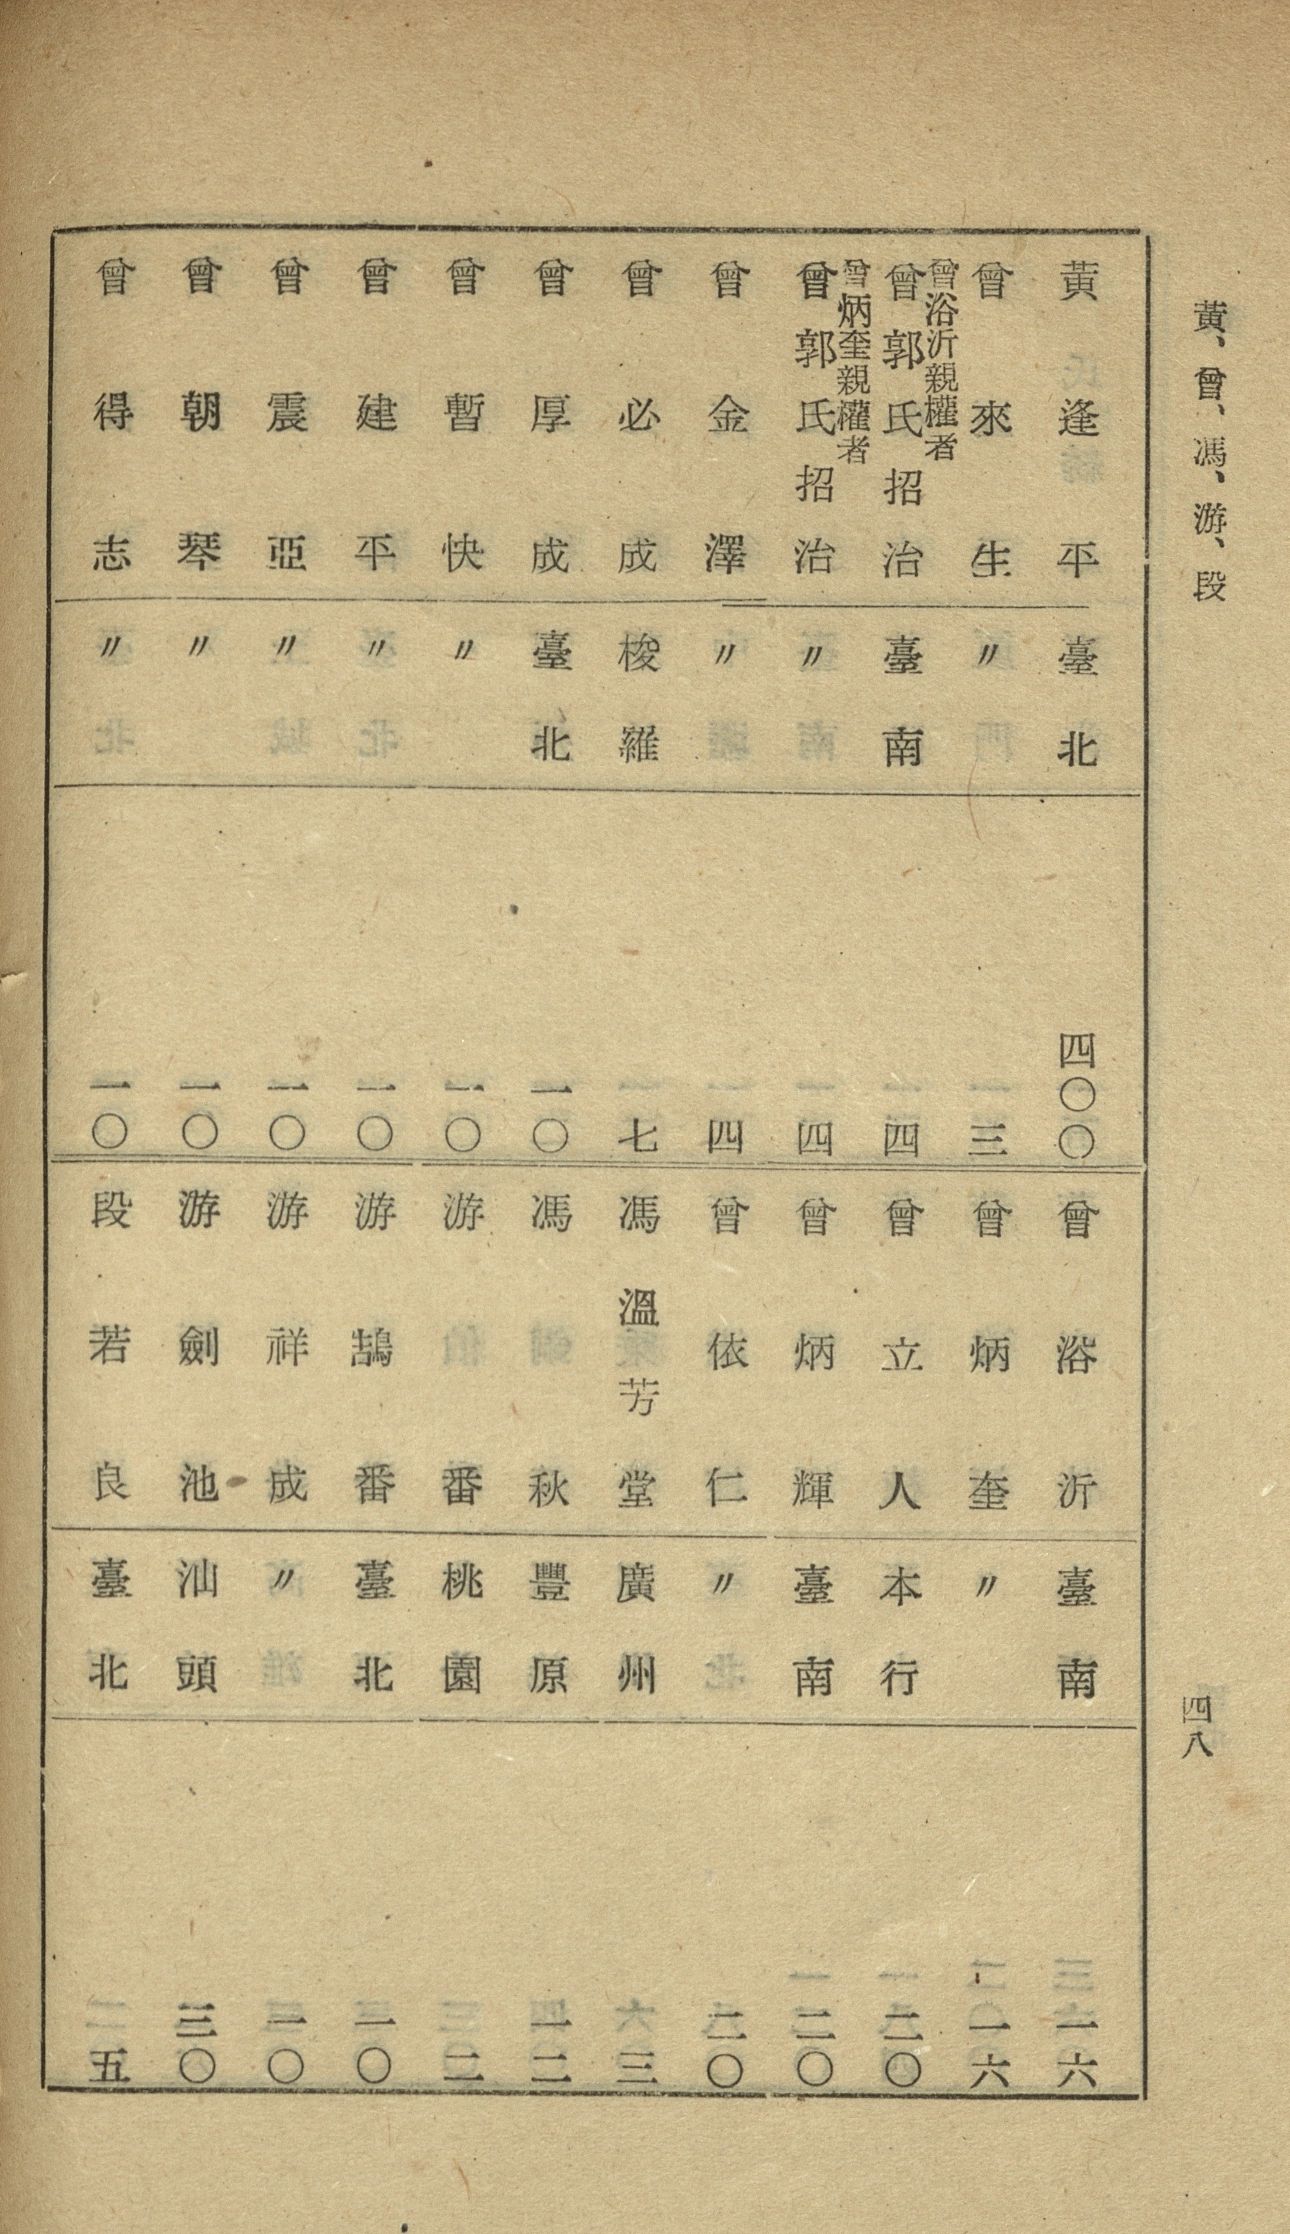 黃、曾、馮、游、段
四八
黃逢平 臺北 四〇〇
曾來生 〃 一三
曾浴沂親權者
曾郭氏招治 臺南 一四
曾炳奎親權者
曾郭氏招治 〃 一四
曾金澤 〃 一四
曾必成 梭羅 一七
曾厚成 臺北 一〇
曾暫快 〃 一〇
曾建平 〃 一〇
曾震亞 〃 一〇
曾朝琴 〃 一〇
曾得志 〃 一〇
曾浴沂 臺南 一六
曾炳奎 〃 一六
曾立人 本行 二〇
曾炳輝 臺南 二〇
曾依仁 〃 二〇
馮溫芳堂 廣州 三
馮秋 豐原 一二
游番 桃園 二
游鵠番 臺北 一〇
游祥成 〃 一〇
游劍池 汕頭 三〇
段若良 臺北 五